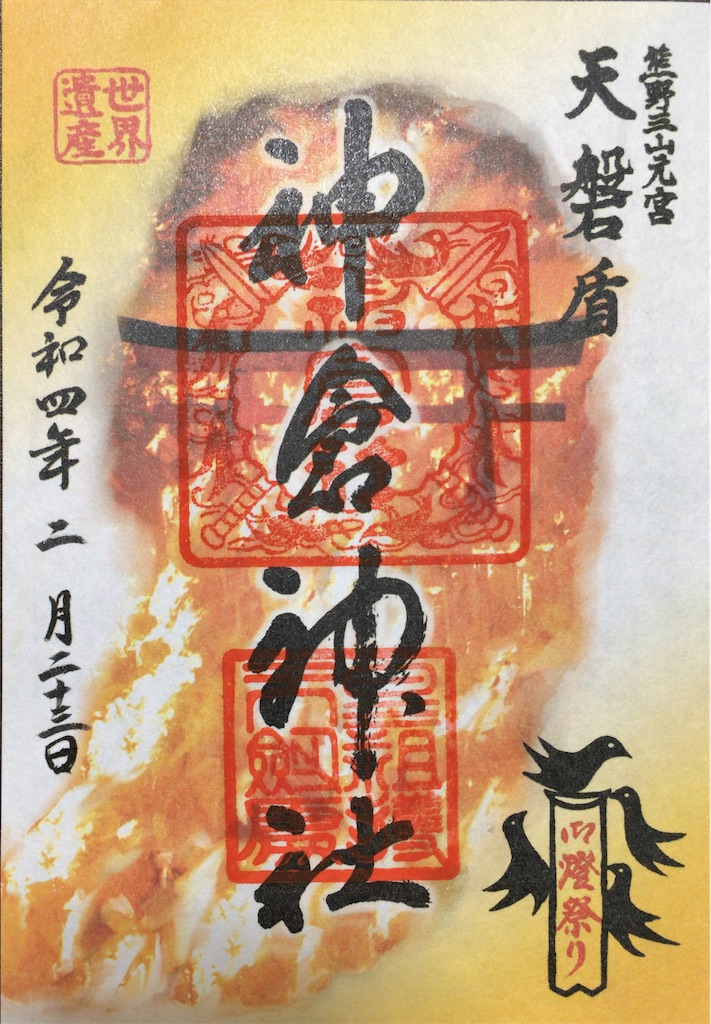 熊野三山元宮
天磐盾
神倉神社
令和四年二月二十三日
世界
遺産
御燈祭り